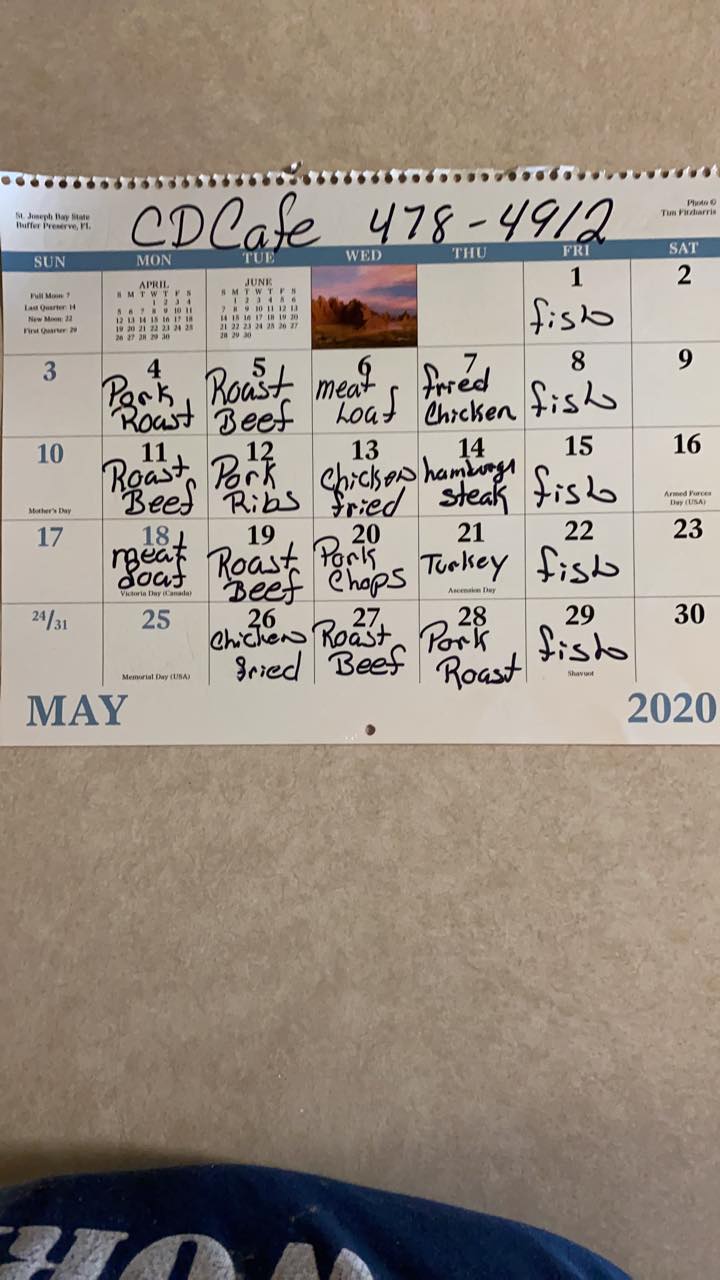 St. Joseph Bay State
Buffer Preserve, FL
CD Cafe 478-4912
Photo ©
Tim Fitzharris
SUN MON TUE WED THU FRI SAT
Full Moon: 7
Last Quarter: 14
New Moon: 22
First Quarter: 29
APRIL
S M T W T F S
1 2 3 4
5 6 7 8 9 10 11
12 13 14 15 16 17 18
19 20 21 22 23 24 25
26 27 28 29 30
JUNE
S M T W T F S
1 2 3 4 5 6
7 8 9 10 11 12 13
14 15 16 17 18 19 20
21 22 23 24 25 26 27
28 29 30
1
fish
2
3
4
Pork
Roast
5
Roast
Beef
6
meat
Loaf
7
fried
Chicken
8
fish
9
10
Mother's Day
11
Roast
Beef
12
Pork
Ribs
13
Chicken
fried
14
hamburgr
steak
15
fish
16
Armed Forces
Day (USA)
17
18
meat
Loaf
Victoria Day (Canada)
19
Roast
Beef
20
Pork
Chops
21
Turkey
Ascension Day
22
fish
23
24/31
25
Memorial Day (USA)
26
Chicken
fried
27
Roast
Beef
28
Pork
Roast
29
fish
Shavuot
30
MAY 2020